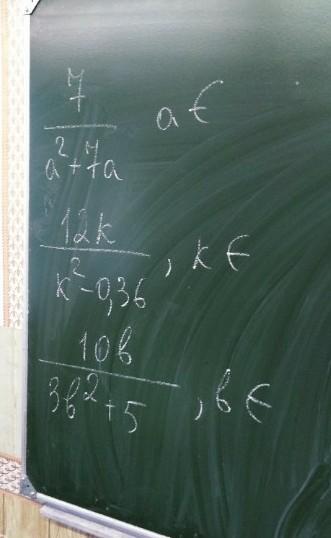 7
a²+7a
a ∈
12k
k²-0,36
, k ∈
10в
3в²+5
, в ∈